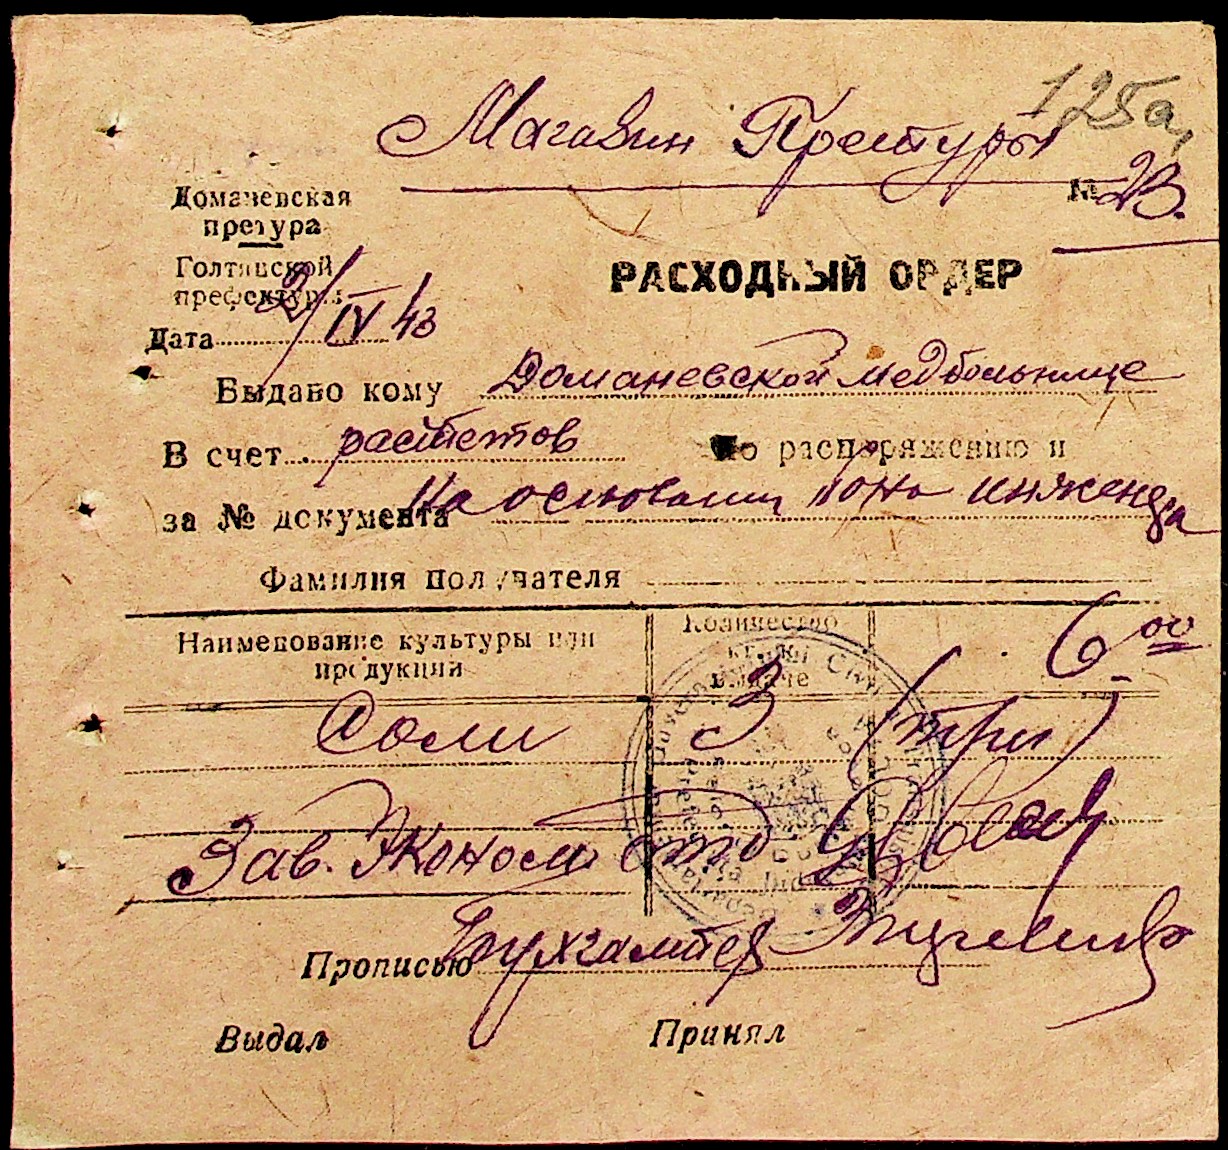 125а,
Магазин Претуры
№ 23.
Доманевская
претура
Голтянской
префектуры
РАСХОДНЫЙ ОРДЕР
Дата 2/IV 43
Выдано кому Доманевской медбольнице
В счет По распоряжению и
за № документа На основании бона инженера
Фамилия получателя
Наименование культуры или
продукции
Количество
кг. к
выдаче
6 00
Соли 3 (три)
Зав. Эконом
Прописью Бухгалтер
Выдал Принял